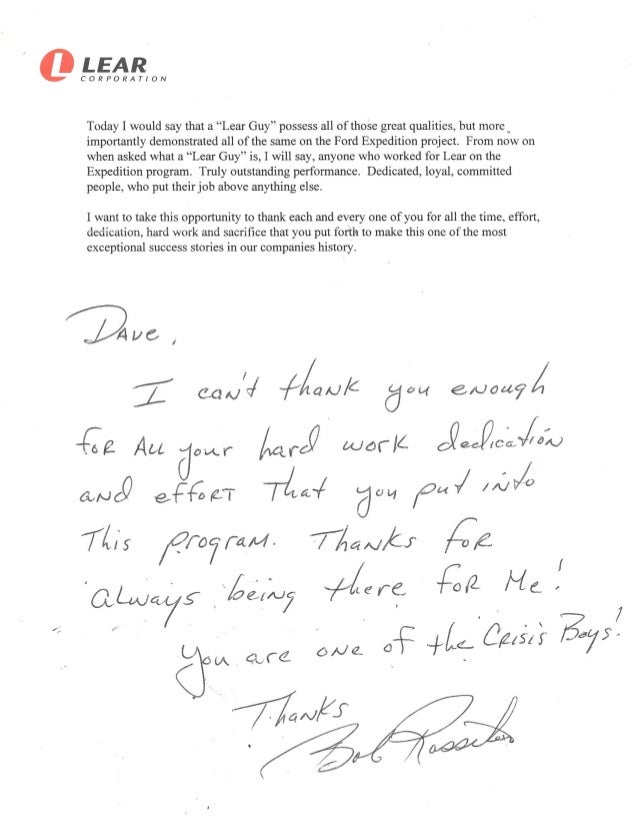 LEAR
CORPORATION
Today I would say that a “Lear Guy” possess all of those great qualities, but more
importantly demonstrated all of the same on the Ford Expedition project. From now on
when asked what a “Lear Guy” is, I will say, anyone who worked for Lear on the
Expedition program. Truly outstanding performance. Dedicated, loyal, committed
people, who put their job above anything else.
I want to take this opportunity to thank each and every one of you for all the time, effort,
dedication, hard work and sacrifice that you put forth to make this one of the most
exceptional success stories in our companies history.
Dave,
I can't thank you enough
for All your hard work dedication
and effort That you put into
This program. Thanks for
always being there for Me!
You are one of the Crisis Boys!
Thanks
Bob Rossiter